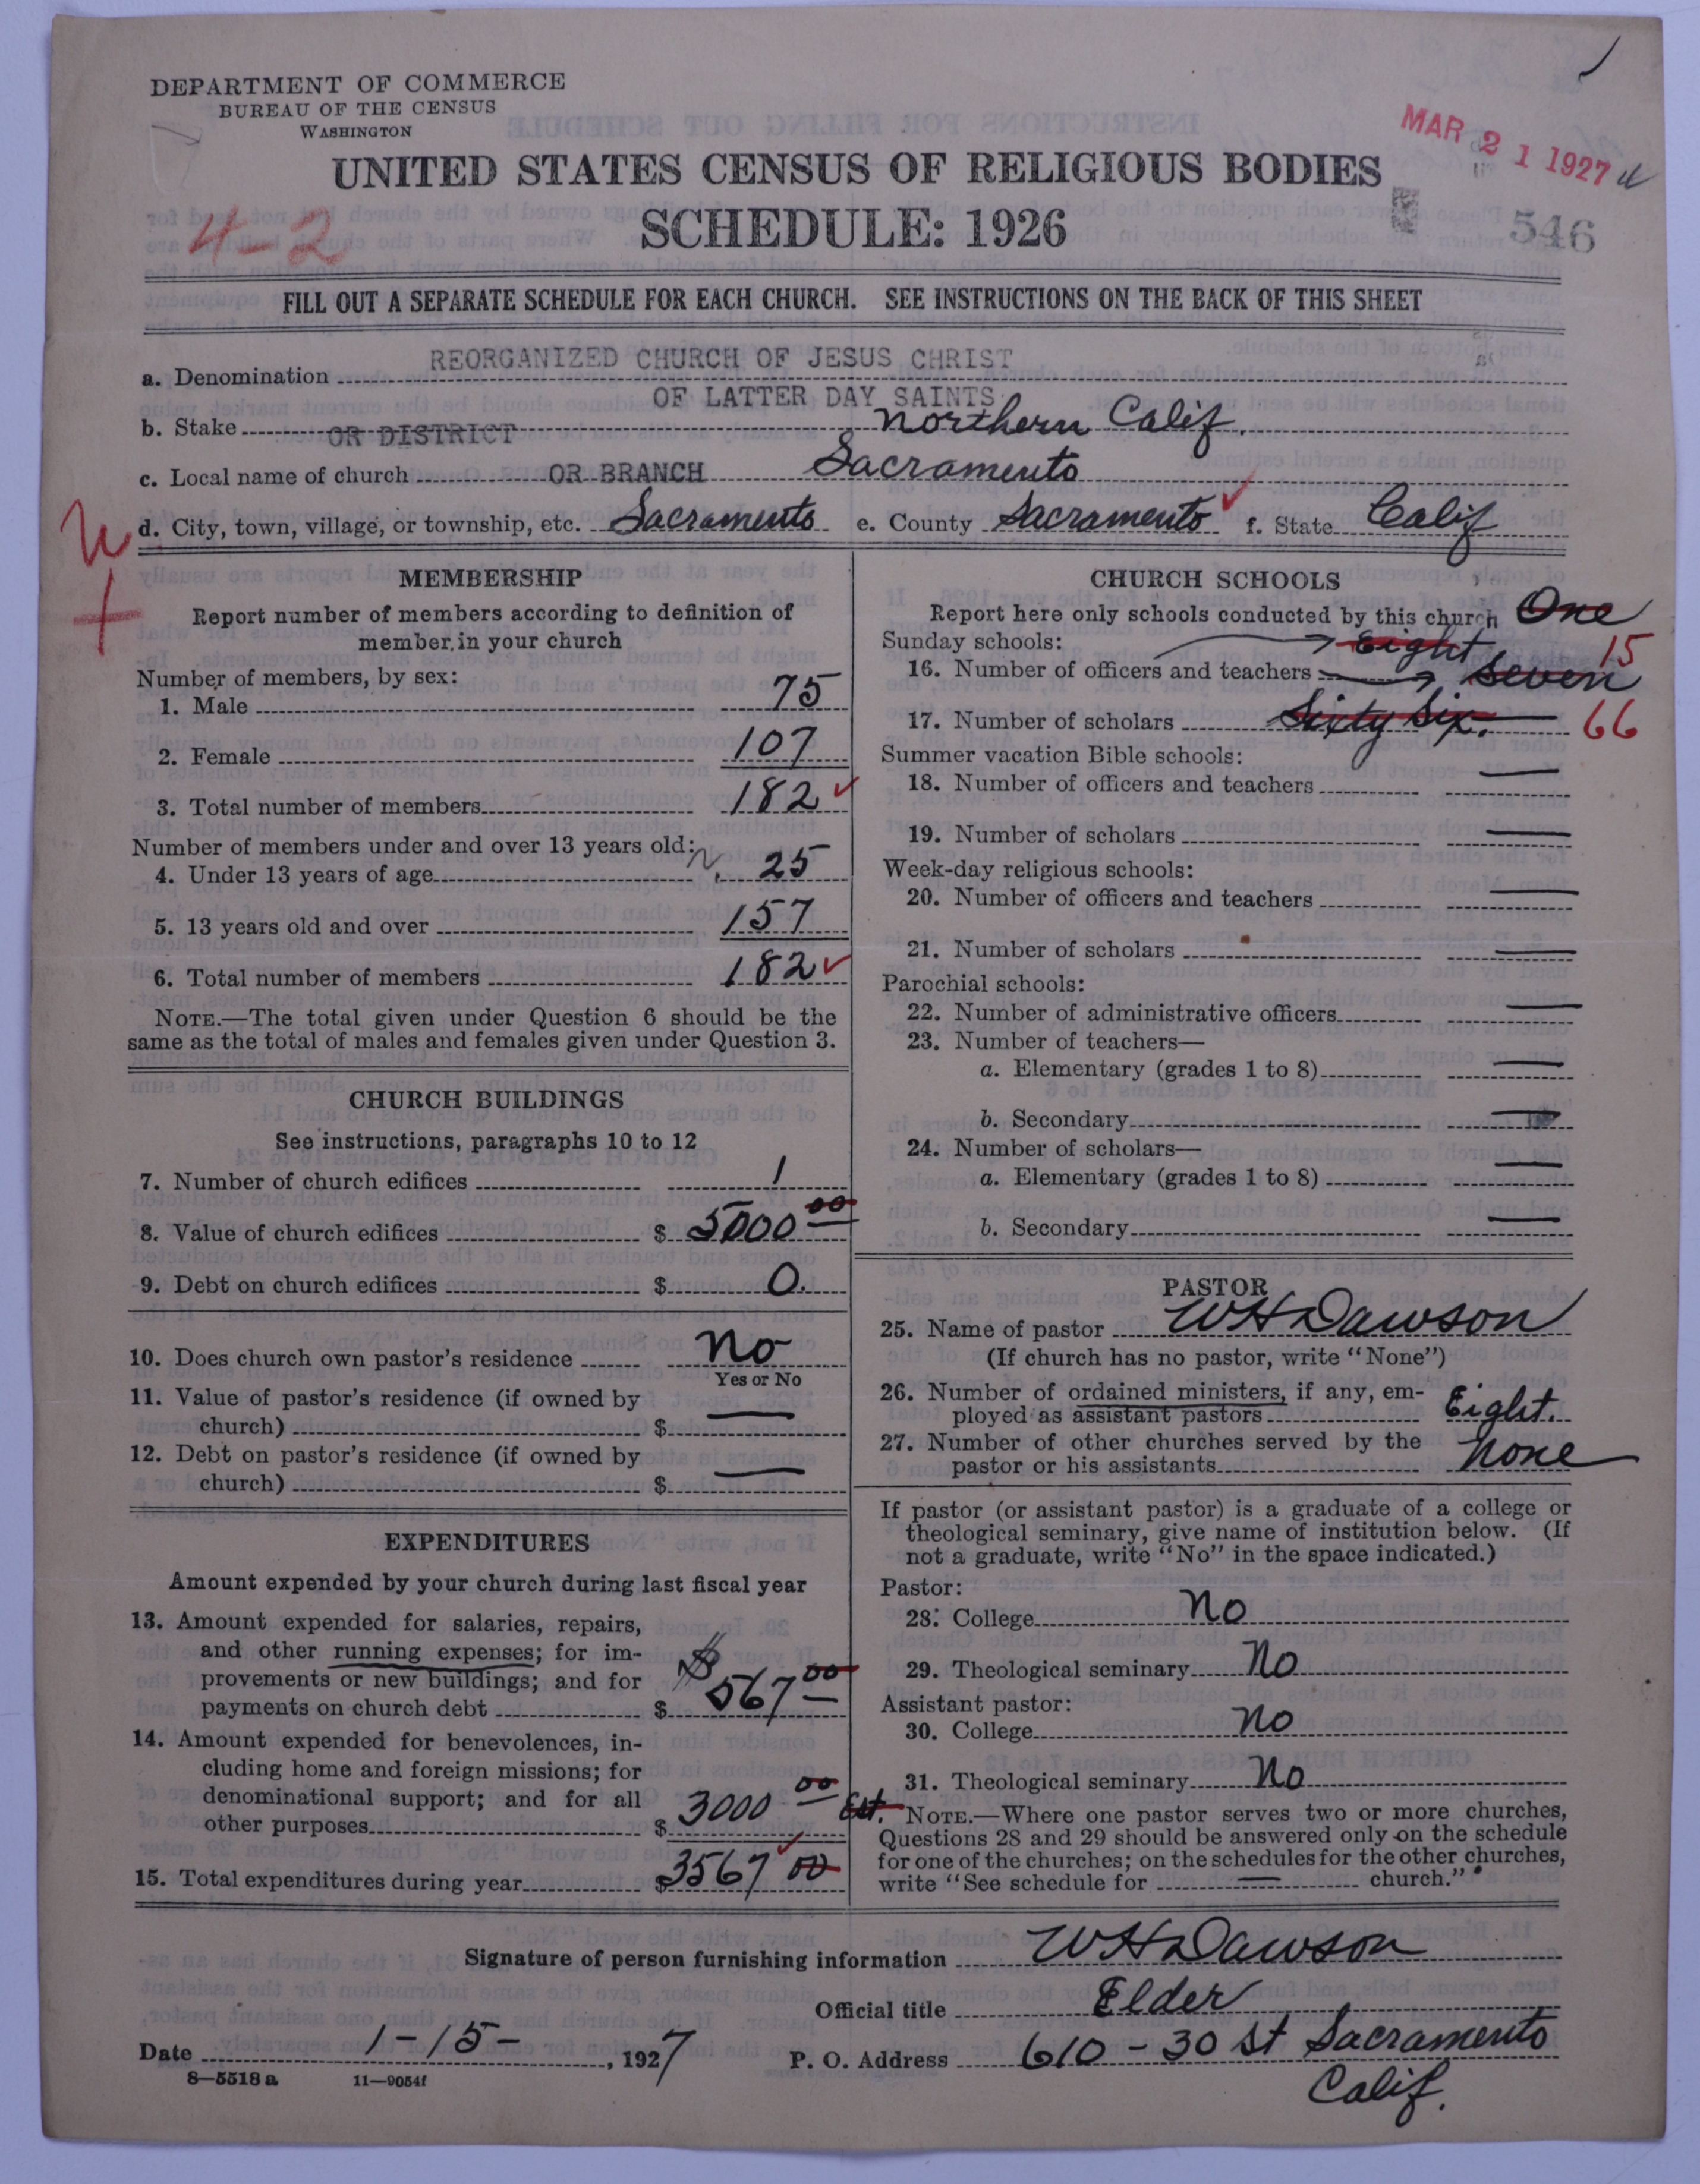 DEPARTMENT OF COMMERCE
BUREAU OF THE CENSUS
WASHINGTON
MAR 21 1927
UNITED STATES CENSUS OF RELIGIOUS BODIES
4-2
SCHEDULE: 1926
546
FILL OUT A SEPARATE SCHEDULE FOR EACH CHURCH. SEE INSTRUCTIONS ON THE BACK OF THIS SHEET
a. Denomination REORGANIZED CHURCH OF JESUS CHRIST
OF LATTER DAY SAINTS
b. Stake OR DISTRICT Northern Calif.
c. Local name of church OR BRANCH Sacramento
d. City, town, village, or township, etc. Sacramento e. County Sacramento f. State Calif
MEMBERSHIP
Report number of members according to definition of
member in your church
Number of members, by sex:
1. Male 75
2. Female 107
3. Total number of members 182
Number of members under and over 13 years old:
4. Under 13 years of age 25
5. 13 years old and over 157
6. Total number of members 182
NOTE.—The total given under Question 6 should be the
same as the total of males and females given under Question 3.
CHURCH BUILDINGS
See instructions, paragraphs 10 to 12
7. Number of church edifices 1
8. Value of church edifices $ 5000 00
9. Debt on church edifices $ 0.
10. Does church own pastor's residence No
Yes or No
11. Value of pastor's residence (if owned by
church) $ —
12. Debt on pastor's residence (if owned by
church) $ —
EXPENDITURES
Amount expended by your church during last fiscal year
13. Amount expended for salaries, repairs,
and other running expenses; for im-
provements or new buildings; and for
payments on church debt $ $567 00
14. Amount expended for benevolences, in-
cluding home and foreign missions; for
denominational support; and for all
other purposes $ 3000 00 Est.
15. Total expenditures during year $ 3567 00
CHURCH SCHOOLS
Report here only schools conducted by this church One
Sunday schools: Eight 15
16. Number of officers and teachers Seven
17. Number of scholars Sixty Six. 66
Summer vacation Bible schools:
18. Number of officers and teachers —
19. Number of scholars —
Week-day religious schools:
20. Number of officers and teachers —
21. Number of scholars —
Parochial schools:
22. Number of administrative officers —
23. Number of teachers—
a. Elementary (grades 1 to 8) —
b. Secondary —
24. Number of scholars—
a. Elementary (grades 1 to 8) —
b. Secondary —
PASTOR
25. Name of pastor W H Dawson
(If church has no pastor, write "None")
26. Number of ordained ministers, if any, em-
ployed as assistant pastors Eight.
27. Number of other churches served by the
pastor or his assistants None
If pastor (or assistant pastor) is a graduate of a college or
theological seminary, give name of institution below. (If
not a graduate, write "No" in the space indicated.)
Pastor:
28. College No
29. Theological seminary No
Assistant pastor:
30. College No
31. Theological seminary No
NOTE.—Where one pastor serves two or more churches,
Questions 28 and 29 should be answered only on the schedule
for one of the churches; on the schedules for the other churches,
write "See schedule for — church."
Signature of person furnishing information W H Dawson
Official title Elder
Date 1-15-, 1927 P. O. Address 610 - 30 St Sacramento
Calif.
8—5518 a 11—9054f